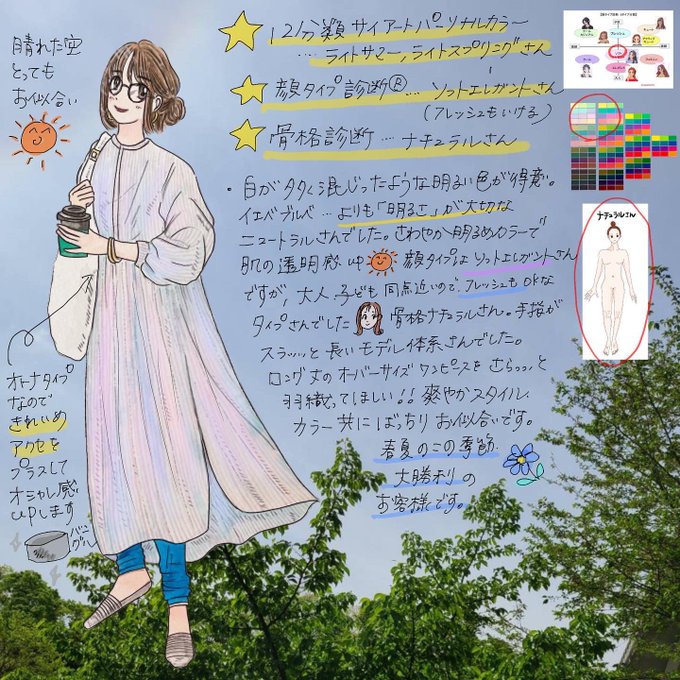 晴れた空
とっても
お似合い
12分類サイアートパーソナルカラー
…ライトサマー,ライトスプリングさん
顔タイプ診断®…ソフトエレガントさん
(フレッシュもいける)
骨格診断…ナチュラルさん
・白が多く混じったような明るい色が得意。
イエベブルベ…よりも「明るさ」が大切な
ニュートラルさんでした。さわやか明るめカラーで
肌の透明感up 顔タイプはソフトエレガントさん
ですが、大人子ども同点近いので、フレッシュもOKな
タイプさんでした 骨格ナチュラルさん。手指が
スラッッと長いモデル体系さんでした。
ロング丈のオーバーサイズワンピースをさらっっっと
羽織ってほしい!!爽やかスタイル、
カラー共にばっちりお似合いです。
春夏のこの季節
大勝利の
お客様です。
オトナタイプ
なので
きれいめ
アクセを
プラスして
オシャレ感
upします
バングル
ナチュラルさん